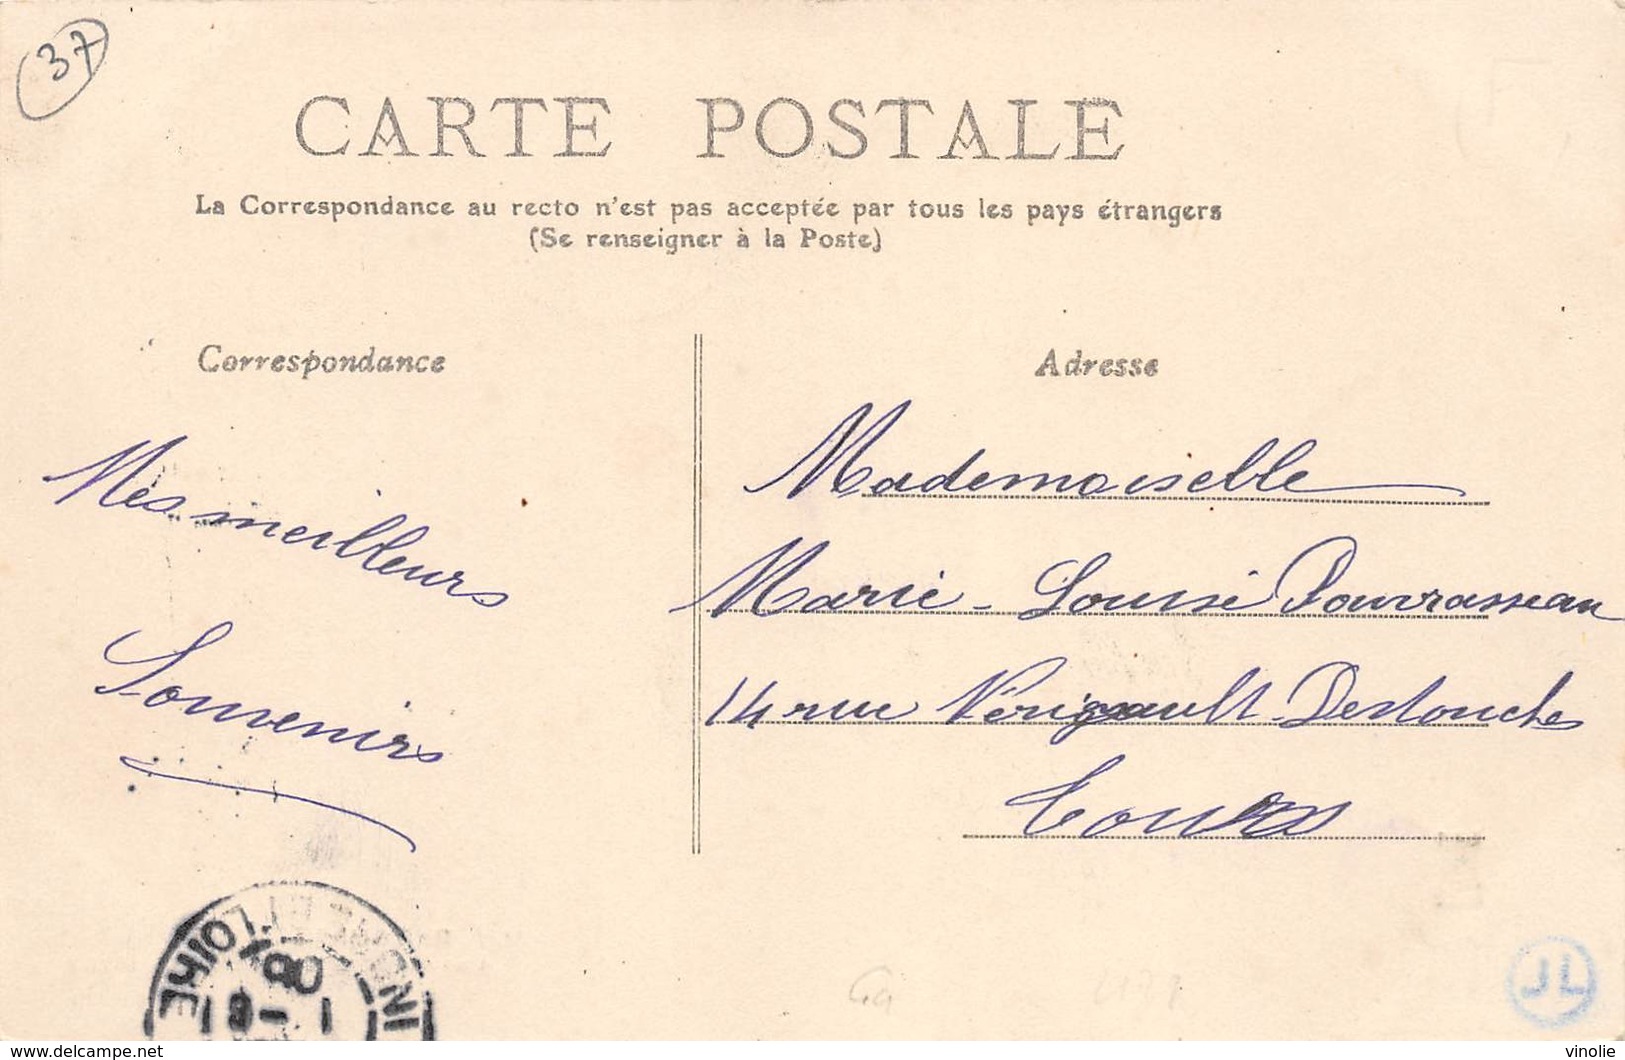 37
CARTE POSTALE
La Correspondance au recto n'est pas acceptée par tous les pays étrangers
(Se renseigner à la Poste)
Correspondance
Mes meilleurs
Souvenirs
Adresse
Mademoiselle
Marie-Louise Pourrasseau
14 rue Vérigault-Destouches
Tours
INDRE ET LOIRE
JL
www.delcampe.net
vinolie